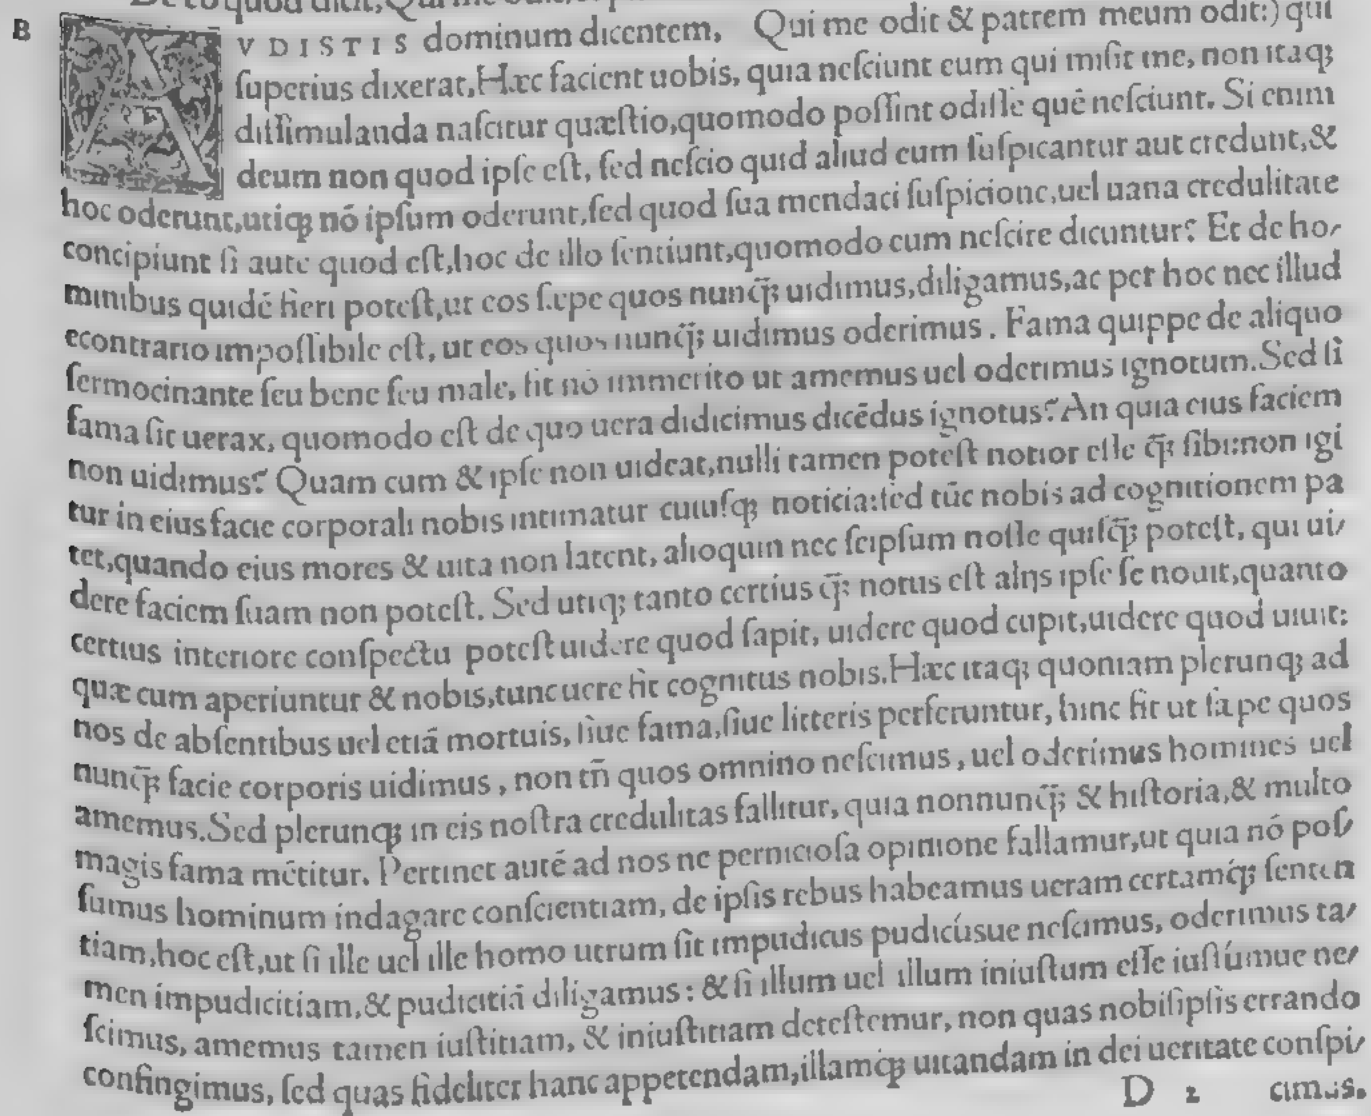 De eo quod dicit, Qui me odit,
B
AVDISTIS dominum dicentem, Qui me odit & patrem meum odit:) qui
ſuperius dixerat, Hæc facient uobis, quia neſciunt eum qui miſit me, non itaqꝫ
diſſimulanda naſcitur quæſtio, quomodo poſſint odiſſe quē neſciunt. Si enim
deum non quod ipſe eſt, ſed neſcio quid aliud eum ſuſpicantur aut credunt, &
hoc oderunt, utiqꝫ nō ipſum oderunt, ſed quod ſua mendaci ſuſpicione, uel uana credulitate
concipiunt ſi aute quod eſt, hoc de illo ſentiunt, quomodo eum neſcire dicuntur? Et de ho-
minibus quidē fieri poteſt, ut eos ſæpe quos nunq̄ꝫ uidimus, diligamus, ac per hoc nec illud
econtrario impoſſibile eſt, ut eos quos nunq̄ꝫ uidimus oderimus. Fama quippe de aliquo
ſermocinante ſeu bene ſeu male, fit nō immerito ut amemus uel oderimus ignotum. Sed ſi
fama ſit uerax, quomodo eſt de quo uera didicimus dicēdus ignotus? An quia eius faciem
non uidimus? Quam cum & ipſe non uideat, nulli tamen poteſt notior eſſe q̄ꝫ ſibi: non igi
tur in eius facie corporali nobis intimatur cuiuſqꝫ noticia: ſed tūc nobis ad cognitionem pa
tet, quando eius mores & uita non latent, alioquin nec ſeipſum noſſe quiſq̄ꝫ poteſt, qui ui-
dere faciem ſuam non poteſt. Sed utiqꝫ tanto certius q̄ꝫ notus eſt alijs ipſe ſe nouit, quanto
certius interiore conſpectu poteſt uidere quod ſapit, uidere quod cupit, uidere quod uiuit:
quæ cum aperiuntur & nobis, tunc uere fit cognitus nobis. Hæc itaqꝫ quoniam plerunqꝫ ad
nos de abſentibus uel etiā mortuis, ſiue fama, ſiue litteris perferuntur, hinc fit ut ſæpe quos
nunq̄ꝫ facie corporis uidimus, non tñ quos omnino neſcimus, uel oderimus homines uel
amemus. Sed plerunqꝫ in eis noſtra credulitas fallitur, quia nonnunq̄ꝫ & hiſtoria, & multo
magis fama mētitur. Pertinet autē ad nos ne pernicioſa opinione fallamur, ut quia nō poſ-
ſumus hominum indagare conſcientiam, de ipſis rebus habeamus ueram certamq́ꝫ ſenten
tiam, hoc eſt, ut ſi ille uel ille homo utrum ſit impudicus pudicúsue neſcimus, oderimus ta-
men impudicitiam, & pudicitiā diligamus: & ſi illum uel illum iniuſtum eſſe iuſtúmue ne-
ſcimus, amemus tamen iuſtitiam, & iniuſtitiam deteſtemur, non quas nobiſipſis errando
confingimus, ſed quas fideliter hanc appetendam, illamq́ꝫ uitandam in dei ueritate conſpi-
D 2 cimus.